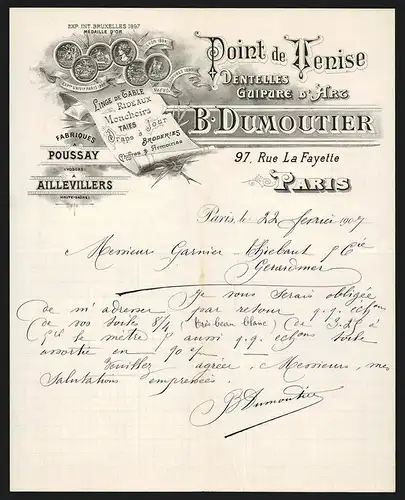 EXP. INT. BRUXELLES 1897
MÉDAILLE D'OR
Point de Venise
DENTELLES
GUIPURE D'ART
B. DUMOUTIER
97, Rue La Fayette
PARIS
LINGE DE TABLE
RIDEAUX
Mouchoirs
TAIES
Draps à Jour
BRODERIES
Chiffres & Armoiries
FABRIQUES
À
POUSSAY
(VOSGES)
À
AILLEVILLERS
(HAUTE-SAÔNE)
Paris, le 22 février 1907
Messieurs Garnier-Thiébaut & Cie
Gérardmer
Je vous serais obligée
de m'adresser par retour q.q. échons
de vos toiles 8/4 (très beau blanc) de 3.25 à
le mètre & aussi q.q. échons toile
assortie en
Veuillez agréer, Messieurs, mes
salutations empressées.
B Dumoutier